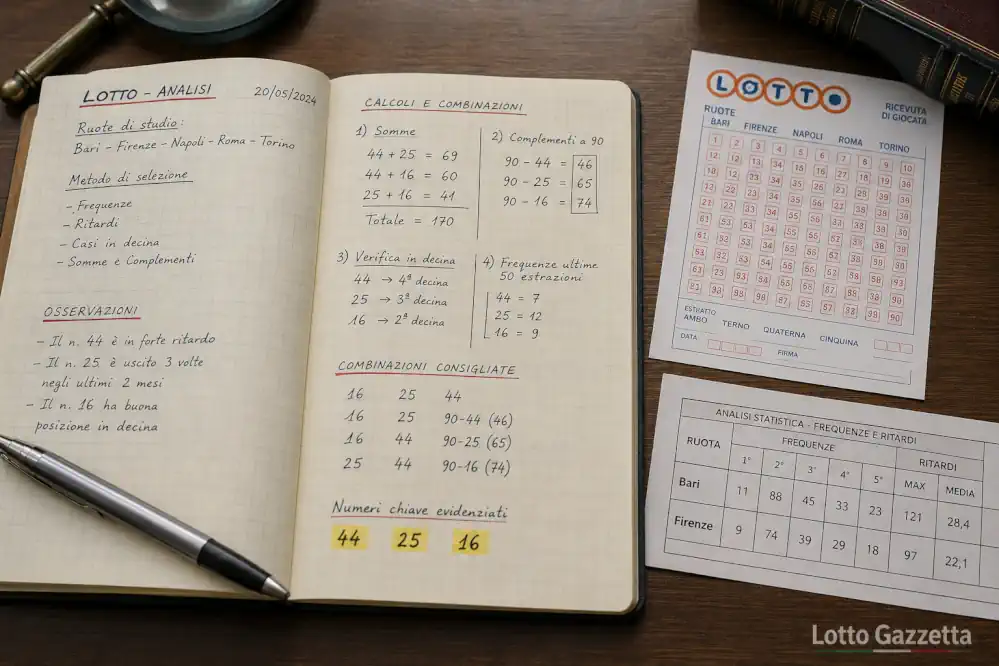 LOTTO – ANALISI
20/05/2024
Ruote di studio:
Bari – Firenze – Napoli – Roma – Torino
Metodo di selezione
– Frequenze
– Ritardi
– Casi in decina
– Somme e Complementi
OSSERVAZIONI
– Il n. 44 è in forte ritardo
– Il n. 25 è uscito 3 volte
negli ultimi 2 mesi
– Il n. 16 ha buona
posizione in decina
CALCOLI E COMBINAZIONI
1) Somme
44 + 25 = 69
44 + 16 = 60
25 + 16 = 41
Totale = 170
2) Complementi a 90
90 – 44 = 46
90 – 25 = 65
90 – 16 = 74
3) Verifica in decina
44 → 4ª decina
25 → 3ª decina
16 → 2ª decina
4) Frequenze ultime
50 estrazioni
44 = 7
25 = 12
16 = 9
COMBINAZIONI CONSIGLIATE
16 25 44
16 25 90-44 (46)
16 44 90-25 (65)
25 44 90-16 (74)
Numeri chiave evidenziati
44 25 16
LOTTO
RICEVUTA
DI GIOCATA
RUOTE
BARI FIRENZE NAPOLI ROMA TORINO
1 2 3 4 5 6 7 8 9 10
ESTRATTO
AMBO TERNO QUATERNA CINQUINA
DATA FIRMA
ANALISI STATISTICA - FREQUENZE E RITARDI
RUOTA FREQUENZE RITARDI
1° 2° 3° 4° 5° MAX MEDIA
Bari 11 88 45 33 23 121 28,4
Firenze 9 74 39 29 18 97 22,1
Lotto Gazzetta